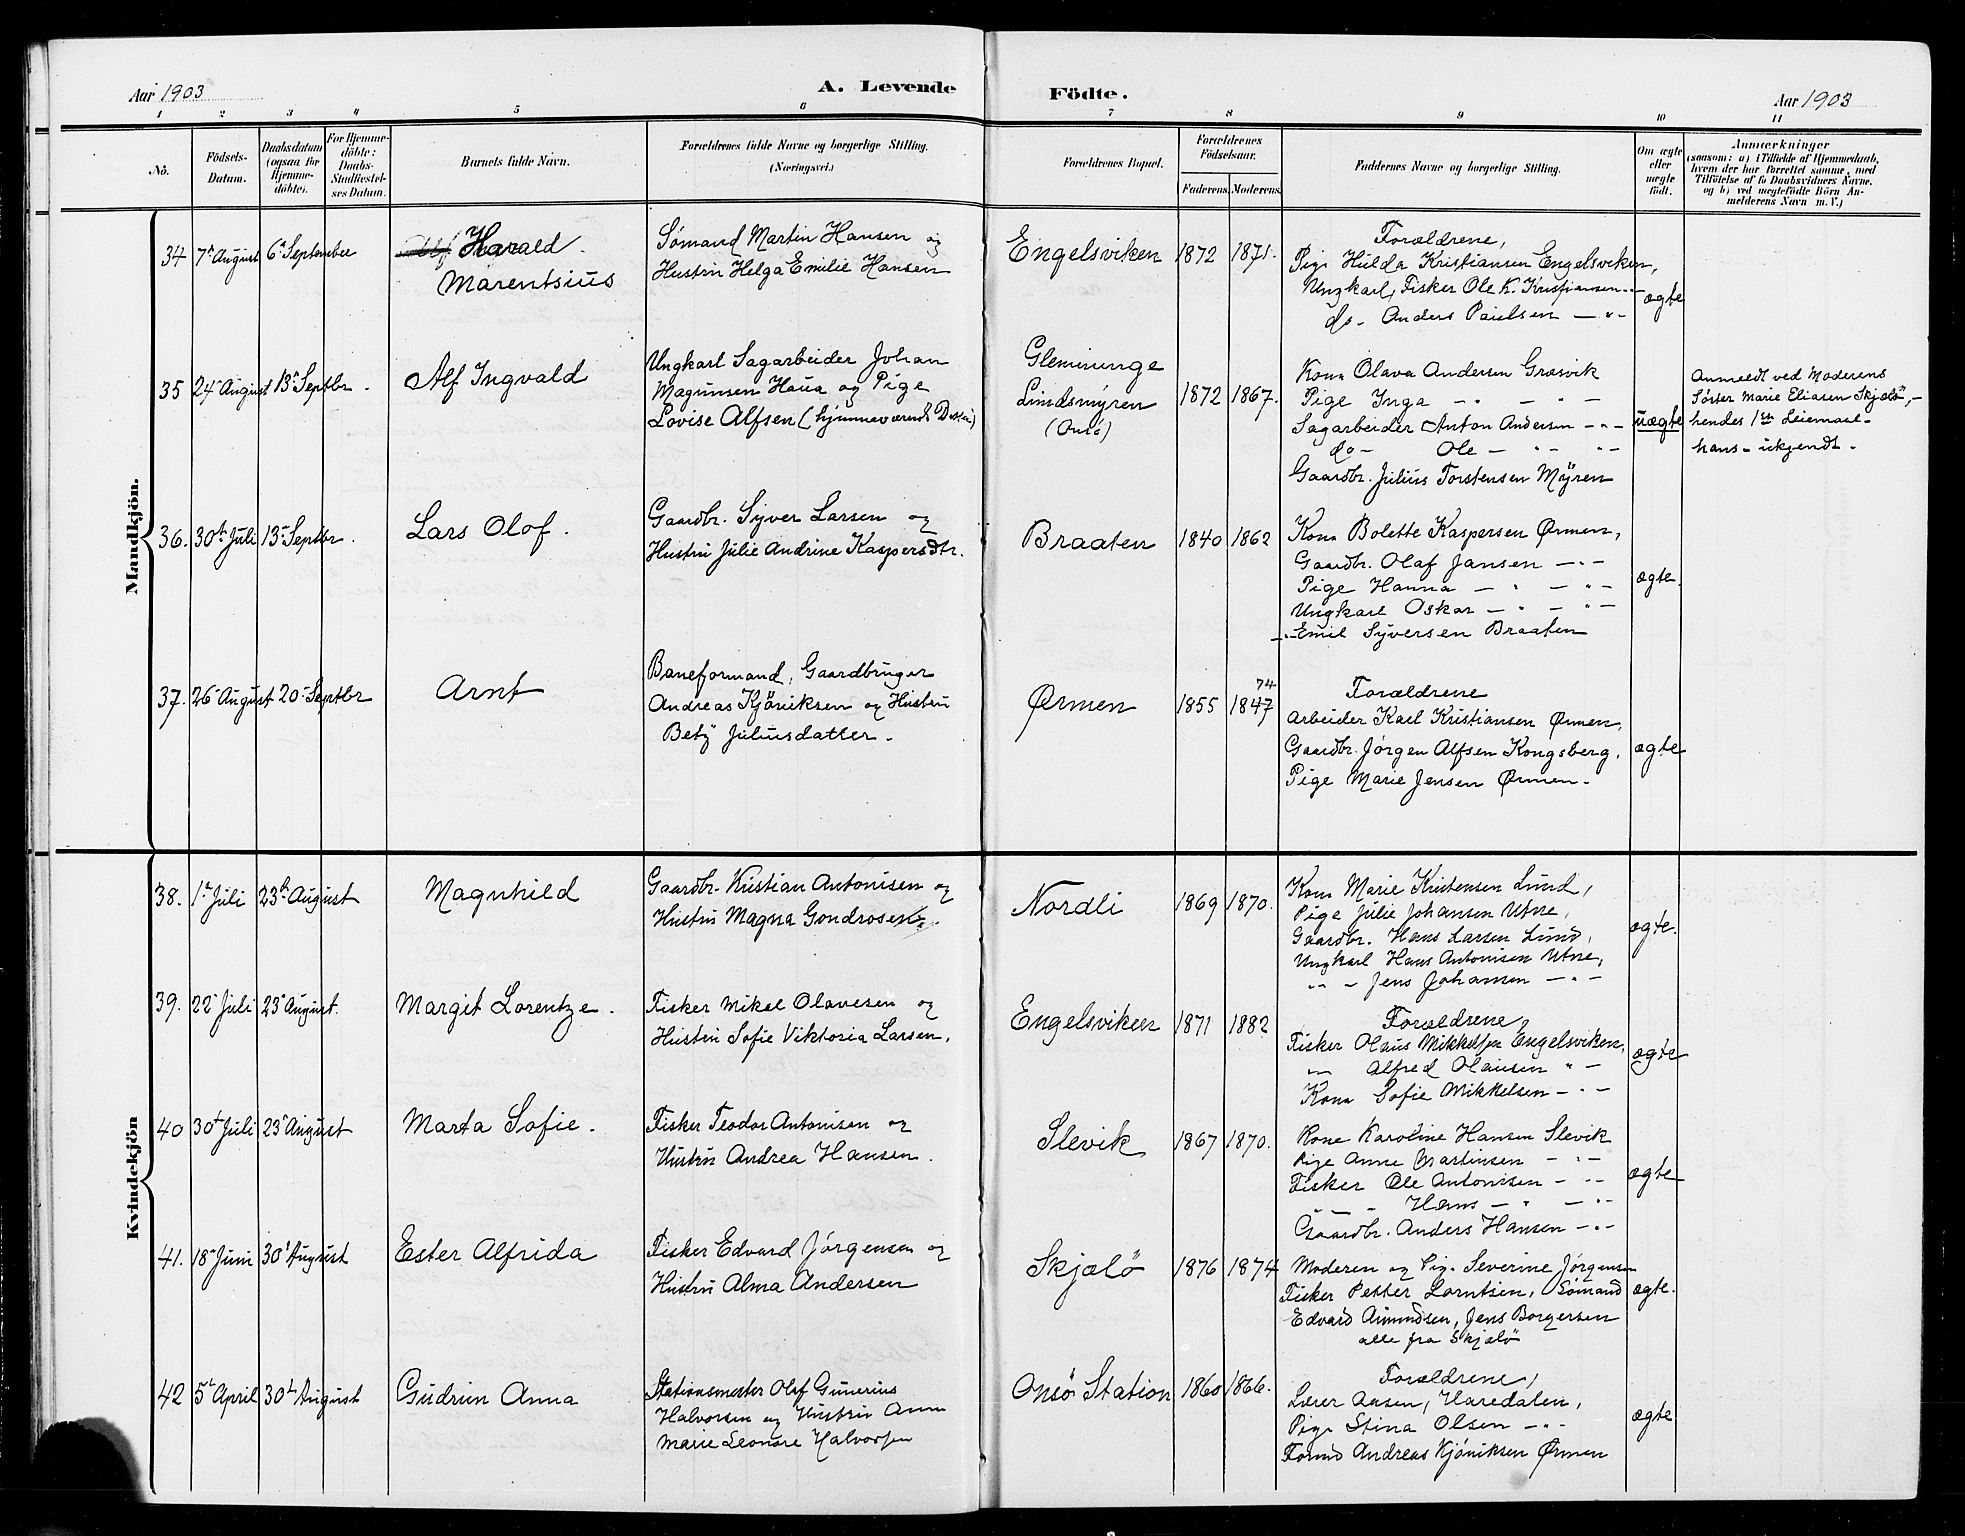 Aar 1903
A. Levende Födte.
Aar 1903
1 2 3 4 5 6 7 8 9 10 11
No.
Födsels-Datum.
Daabsdatum (ogsaa for Hjemme-döbte).
For Hjemme-döbte: Daabs-Stadfæstel-ses Datum.
Barnets fulde Navn.
Forældrenes fulde Navne og borgerlige Stilling. (Næringsvei.)
Forældrenes Bopæl.
Forældrenes Födselsaar.
Faderens. Moderens.
Faddernes Navne og borgerlige Stilling.
Om ægte eller uægte födt.
Anmærkninger
(saasom: a) i Tilfælde af Hjemmedaab,
hvem der har forrettet samme, med
Tilföielse af to Daabsvidners Navne,
og b) ved uægtefödte Börn An-
melderens Navn m. V.)
Mandkjön.
34 7de August 6te September
Harald
Marentsius
Sømand Martin Hansen og
Hustru Helga Emilie Hansen
Engelsviken 1872 1871.
Forældrene,
Pige Hulda Kristiansen Engelsviken,
Ungkarl, Fisker Ole K. Kristiansen -"-
do - Anders Paulsen - " -
ægte
35 24 August 13 Septbr.
Alf Ingvald
Ungkarl Sagarbeider Johan
Magnusen Haua og Pige
Lovise Alfsen (hjemmeværende Datter)
Glemminge
Lindsmyren
(Onsö)
1872 1867.
Kone Olava Andersen Græsvik
Pige Inga - " - " -
Sagarbeider Anton Andersen - " -
do - Ole - " - " -
Gaardbr. Julius Torstensen Myren
uægte
Anmeldt ved Moderens
Søster Marie Eliasen Skjælö, -
hendes 1ste Leiermaal -
hans - ukjendt -
36. 30te Juli 13 Septbr.
Lars Olof.
Gaardbr. Syver Larsen og
Hustru Julie Andrine Kaspersdtr.
Braaten 1840 1862
Kone Bolette Kaspersen Ørmen,
Gaardbr. Olaf Jansen - " -
Pige Hanna - " - " -
Ungkarl Oskar - " - " -
- " - Emil Syversen Braaten
ægte.
37. 26 August 20 Septbr
Arnt
Baneformand, Gaardbruger
Andreas Kjöniksen og Hustru
Betÿ Juliusdatter.
Ørmen 1855 1847
74
Forældrene
Arbeider Karl Kristiansen Ørmen,
Gaardbr. Jörgen Alfsen Kongsberg,
Pige Marie Jensen Ørmen.
ægte
Kvindekjön
38. 1ste Juli 23de August
Magnhild
Gaardbr. Kristian Antonisen og
Hustru Magna Gondrosen.
Nordli 1869 1870.
Kone Marie Kristensen Lund,
Pige Julie Johansen Utne,
Gaardbr. Hans Larsen Lund,
Ungkarl Hans Antonisen Utne,
" - Jens Johansen - " -
ægte.
39. 22 Juli 23 August.
Margit Lorentze.
Fisker Mikal Olavesen og
Hustru Sofie Viktoria Larsen.
Engelsviken 1871 1882
Forældrene,
Fisker Olaus Mikkelsen Engelsviken,
" Alfred Olausen " -
Kone Sofie Mikkelsen - " -
ægte
40 30te Juli 23 August
Marta Sofie.
Fisker Teodor Antonisen og
Hustru Andrea Hansen.
Slevik 1867 1870.
Kone Karoline Hansen Slevik
Pige Anne Martinsen - " -
Fisker Ole Antonisen - " -
" - Hans - " - " -
Gaardbr. Anders Hansen - " -
ægte
41. 18 Juni 30 August
Ester Alfrida
Fisker Edvard Jørgensen og
Hustru Alma Andersen
Skjælö 1876 1874
Moderen og Pige Severine Jørgensen
Fisker Petter Lorntsen, Sømand
Edvard Amundsen, Jens Borgersen
alle fra Skjælö
ægte.
42 5te April 30te August
Gudrun Anna
Stationsmester Olaf Gunerius
Halvorsen og Hustru Anna
Marie Leonore Halvorsen
Onsö Station 1860 1866.
Forældrene,
Lærer Aasen, Haredalen,
Pige Stina Olsen - " -
Formd Andreas Kjöniksen Ørmen
ægte